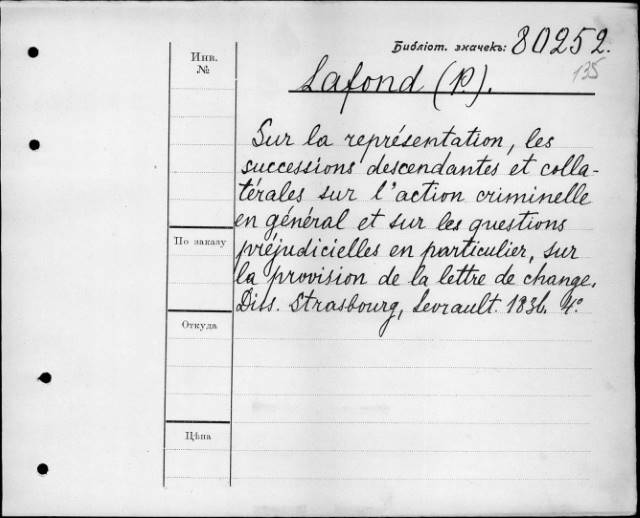 Библіот. значекъ: 80252.
135
Инв.
№
Lafond (P).
Sur la représentation, les
successions descendantes et colla-
térales sur l'action criminelle
en général et sur les questions
préjudicielles en particulier, sur
la provision de la lettre de change.
Diss. Strasbourg, Levrault. 1836. 4º.
По заказу
Откуда
Цѣна